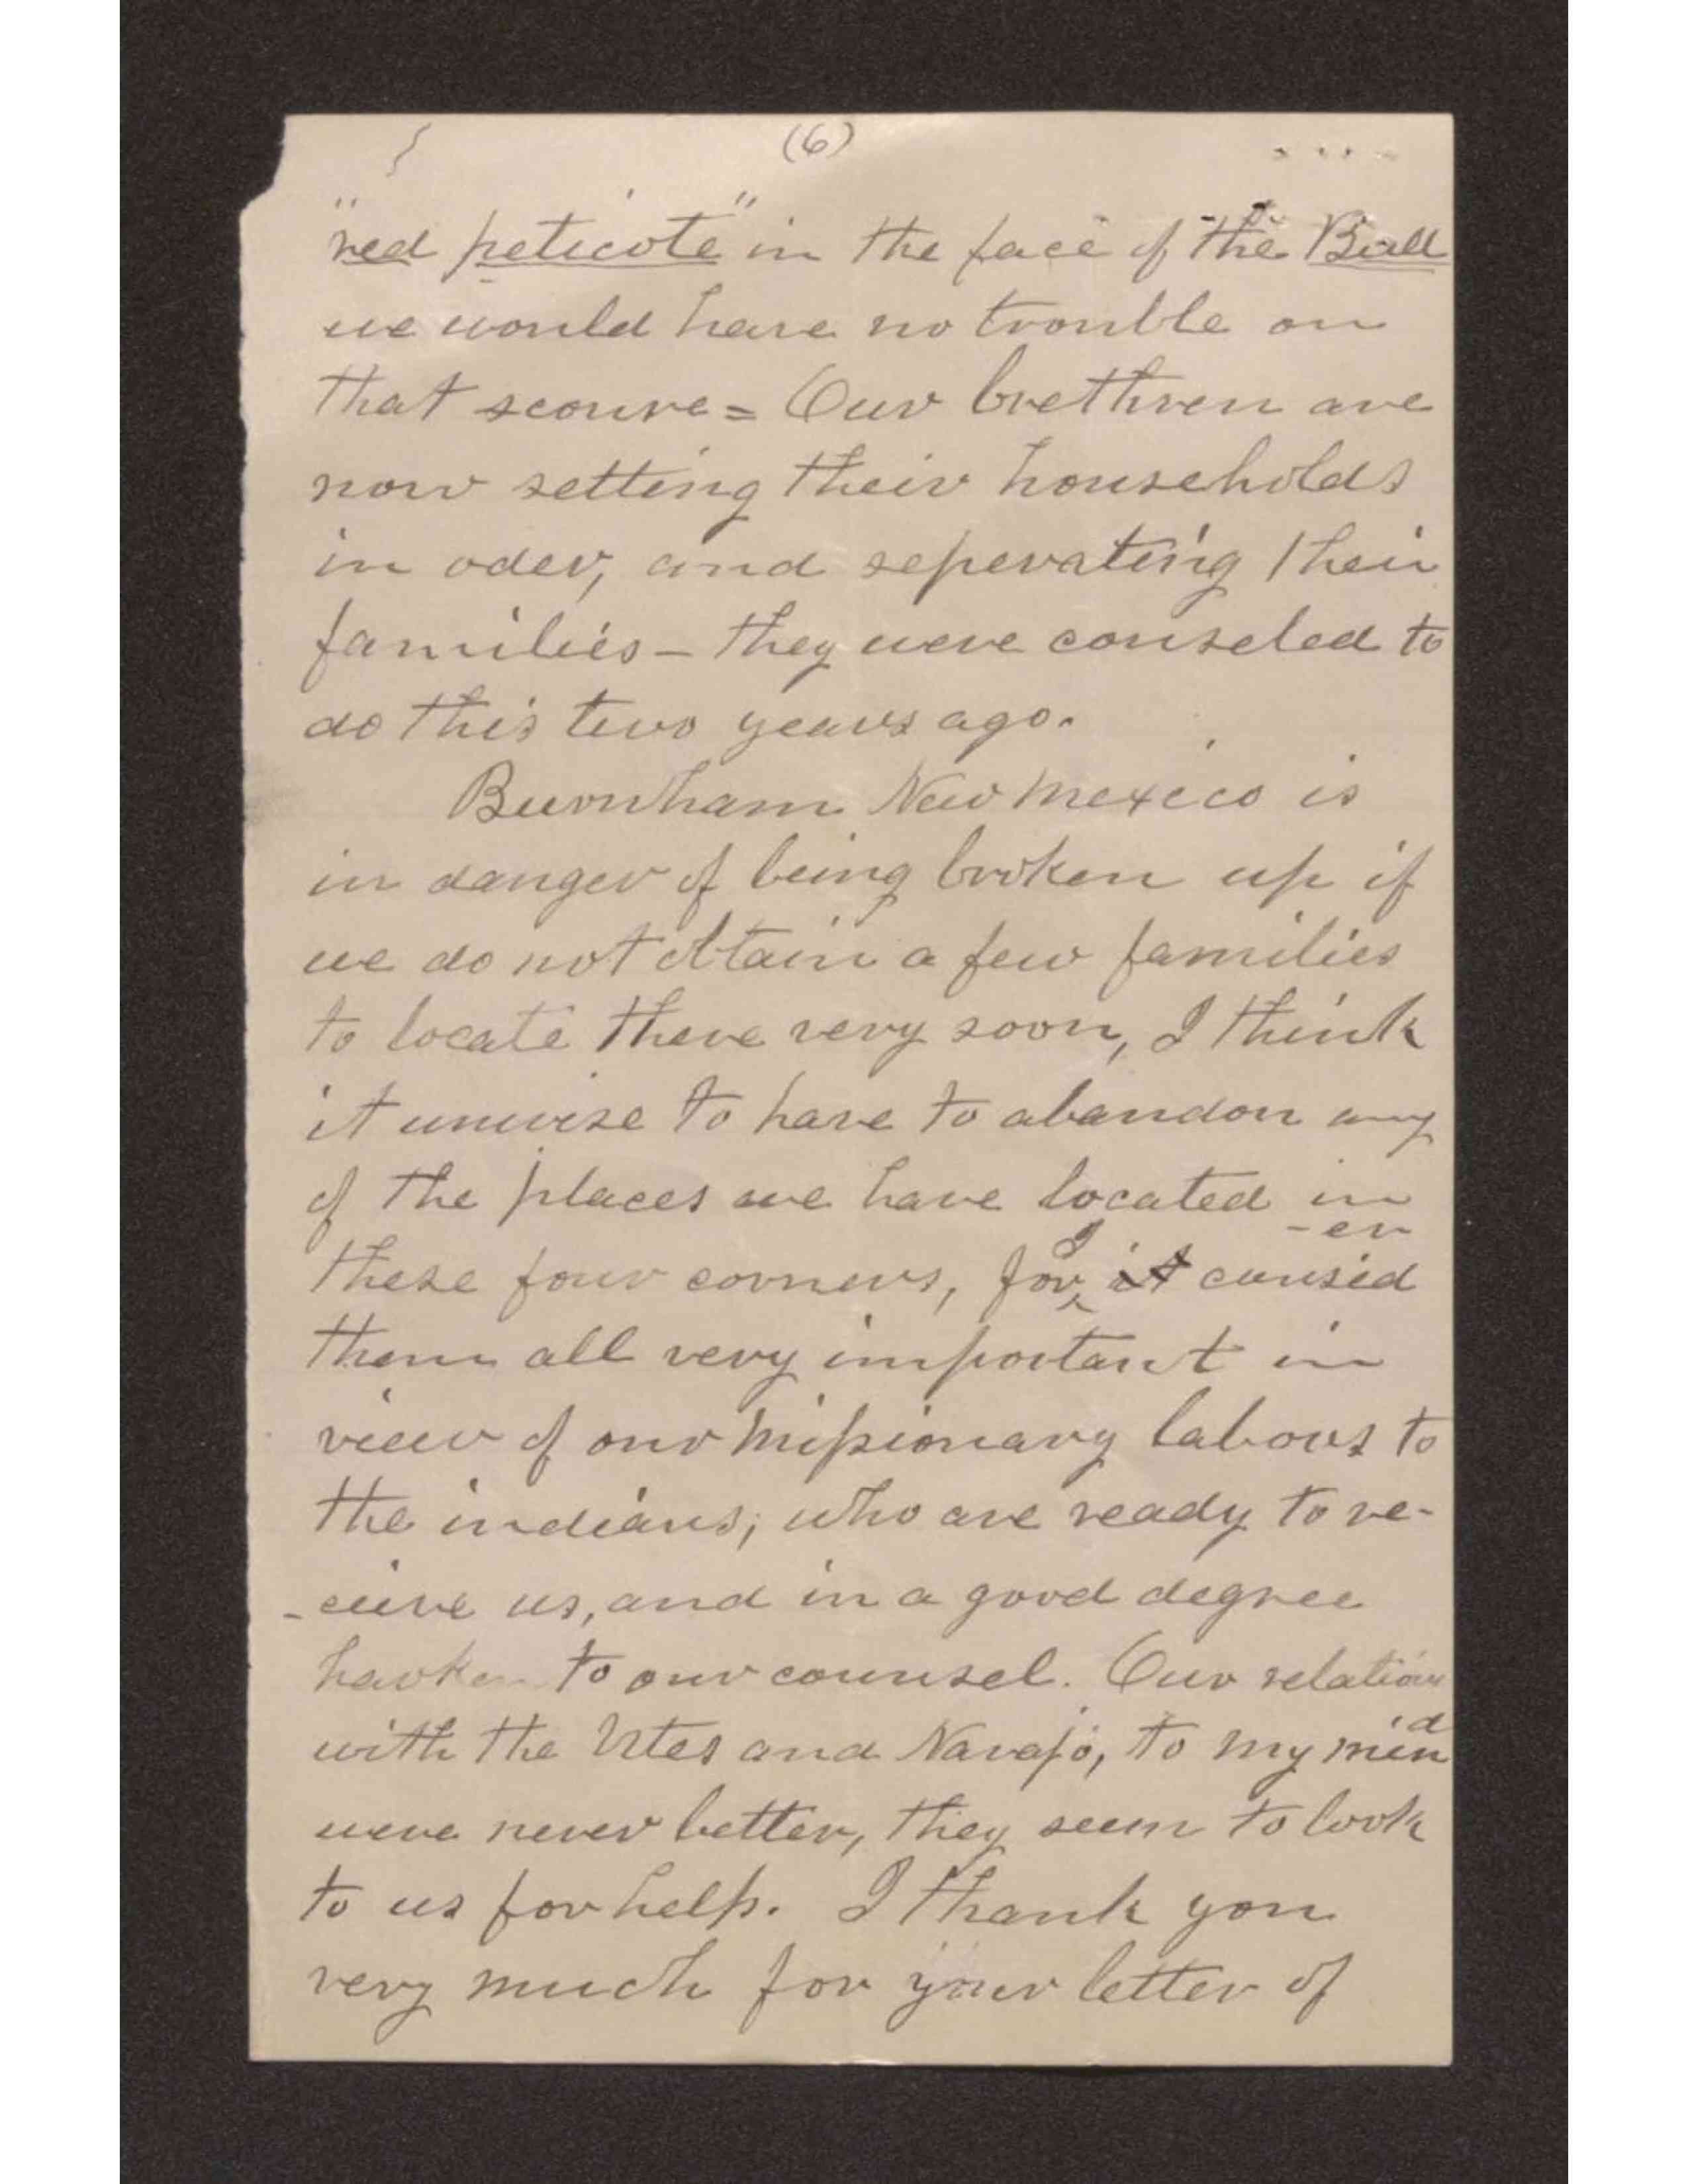 (6)
"red peticote" in the face of the Bull
we would have no trouble on
that scoure = Our brethren are
now setting their households
in oder, and seperating their
families - they were conseled to
do this two years ago.
Burnham New Mexico is
in danger of being broken up if
we do not obtain a few families
to locate there very soon, I think
it unwise to have to abandon any
of the places we have located in
these four corners, for I it consid-er
them all very important in
view of our missionary labors to
the indians; who are ready to re-
-ceive us, and in a good degree
harken to our counsel. Our relations
with the Utes and Navajo, to my mind
were never better, they seem to look
to us for help. I thank you
very much for your letter of